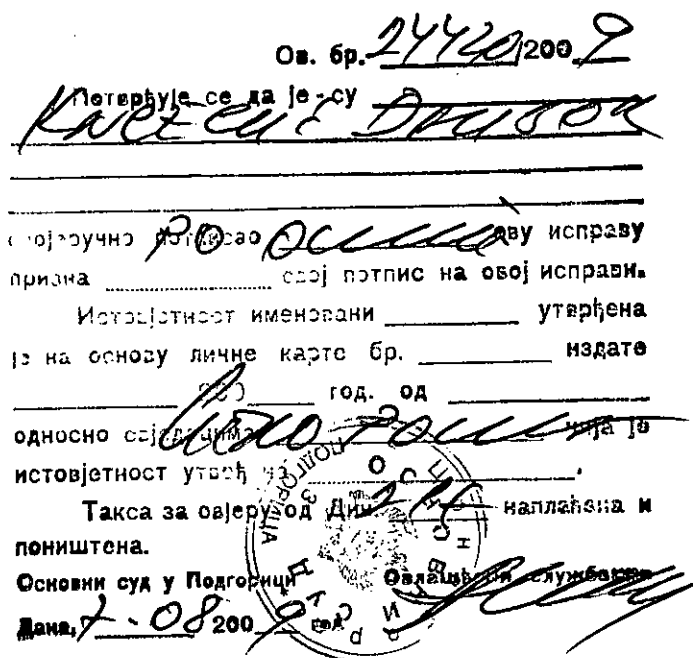 Ов. бр. 24420/2009
Потврђује се да је-су
својеручно потписао ову исправу
призна свој потпис на овој исправи.
Истовјетност именовани утврђена
је на основу личне карте бр. издате
200 год. од
односно свједоцима чија је
истовјетност утврђ на .
Такса за овјеру од Дин. наплаћена и
поништена.
Основни суд у Подгорици Овлашћени службеник
Дана, 7-08 2009 год.
ОСНОВНИ СУД
ПОДГОРИЦА